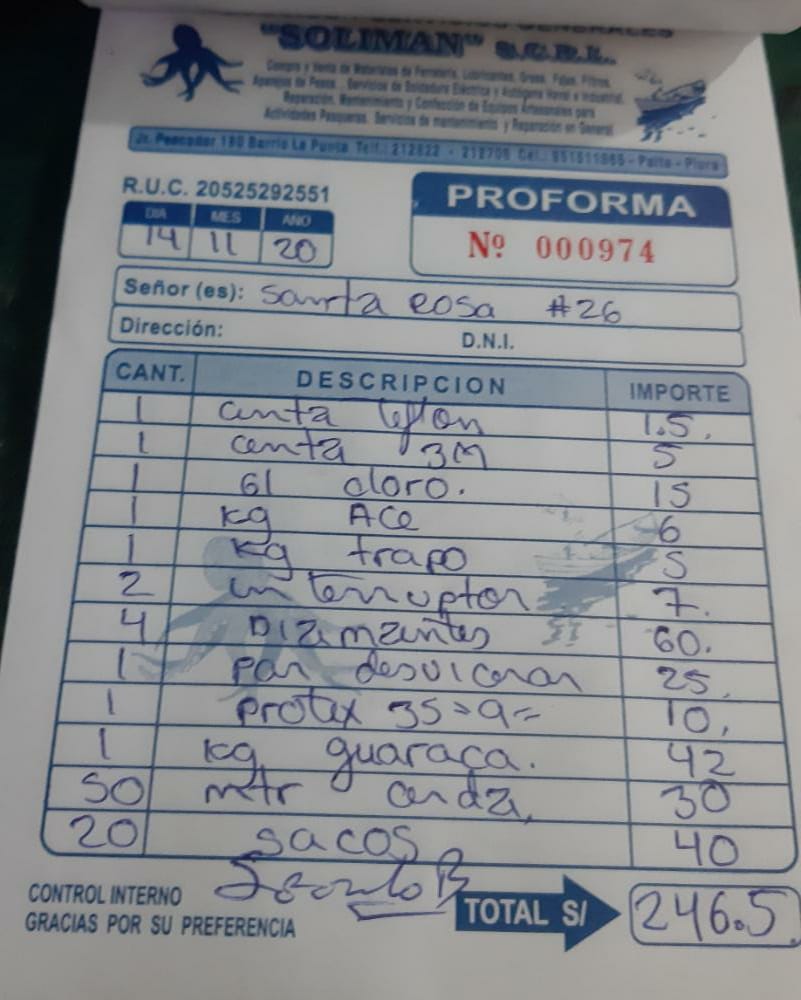 SERVICIOS GENERALES
"SOLIMAN" S.C.R.L.
Compra y Venta de Materiales de Ferretería, Lubricantes, Grasa, Pilas, Filtros,
Aparejos de Pesca, Servicios de Soldadura Eléctrica y Autógena Naval e Industrial,
Reparación, Mantenimiento y Confección de Equipos Artesanales para
Actividades Pesqueras. Servicios de mantenimiento y Reparación en General
Jr. Pescador 180 Barrio La Punta Telf.: 212822 - 212706 Cel.: - Paita - Piura
R.U.C. 20525292551
PROFORMA
DIA MES AÑO
14 11 20
Nº 000974
Señor (es): Santa Rosa #26
Dirección: D.N.I.
CANT. DESCRIPCION IMPORTE
1 cinta teflon 1.5.
1 centa 3M 5
1 Gl cloro. 15
1 kg ACe 6
1 kg trapo 5
2 interruptor 7.
4 Diamantes 60.
1 par 25.
1 protex 10.
1 kg guaraca. 42
50 mtr cerda, 30
20 sacos 40
CONTROL INTERNO
GRACIAS POR SU PREFERENCIA
TOTAL S/ 246.5